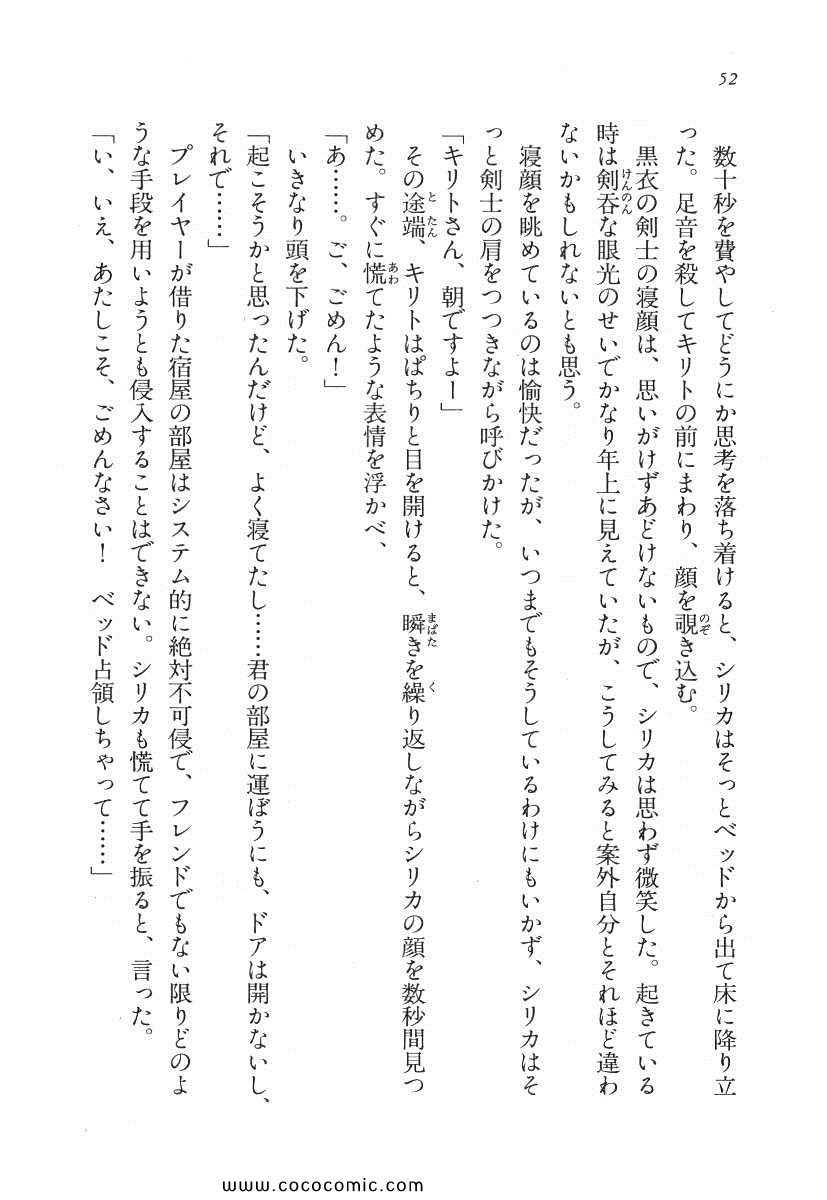 52
数十秒を費やしてどうにか思考を落ち着けると、シリカはそっとベッドから出て床に降り立
った。足音を殺してキリトの前にまわり、顔を覗き込む。
黒衣の剣士の寝顔は、思いがけずあどけないもので、シリカは思わず微笑した。起きている
時は剣呑な眼光のせいでかなり年上に見えていたが、こうしてみると案外自分とそれほど違わ
ないかもしれないとも思う。
寝顔を眺めているのは愉快だったが、いつまでもそうしているわけにもいかず、シリカはそ
っと剣士の肩をつつきながら呼びかけた。
「キリトさん、朝ですよー」
その途端、キリトはぱちりと目を開けると、瞬きを繰り返しながらシリカの顔を数秒間見つ
めた。すぐに慌てたような表情を浮かべ、
「あ……。ご、ごめん！」
いきなり頭を下げた。
「起こそうかと思ったんだけど、よく寝てたし……君の部屋に運ぼうにも、ドアは開かないし、
それで……」
プレイヤーが借りた宿屋の部屋はシステム的に絶対不可侵で、フレンドでもない限りどのよ
うな手段を用いようとも侵入することはできない。シリカも慌てて手を振ると、言った。
「い、いえ、あたしこそ、ごめんなさい！　ベッド占領しちゃって……」
www.cococomic.com